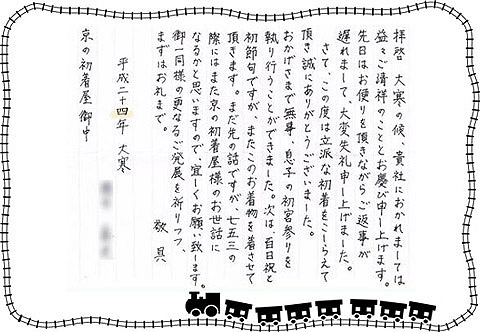 拝啓 大寒の候、貴社におかれましては
益々ご清祥のこととお慶び申し上げます。
先日はお便りを頂きながらご返事が
遅れまして、大変失礼申し上げました。
さて、この度は立派な初着をこしらえて
頂き誠にありがとうございました。
おかげさまで無事、息子の初宮参りを
執り行うことができました。次は、百日祝と
初節句ですが、またこのお着物を着させて
頂きます。まだ先の話ですが、七五三の
際にはまた京の初着屋様のお世話に
なるかと思いますので、宜しくお願い致します。
御一同様の更なるご発展を祈りつつ、
まずはお礼まで。
敬具
平成二十四年 大寒
京の初着屋 御中